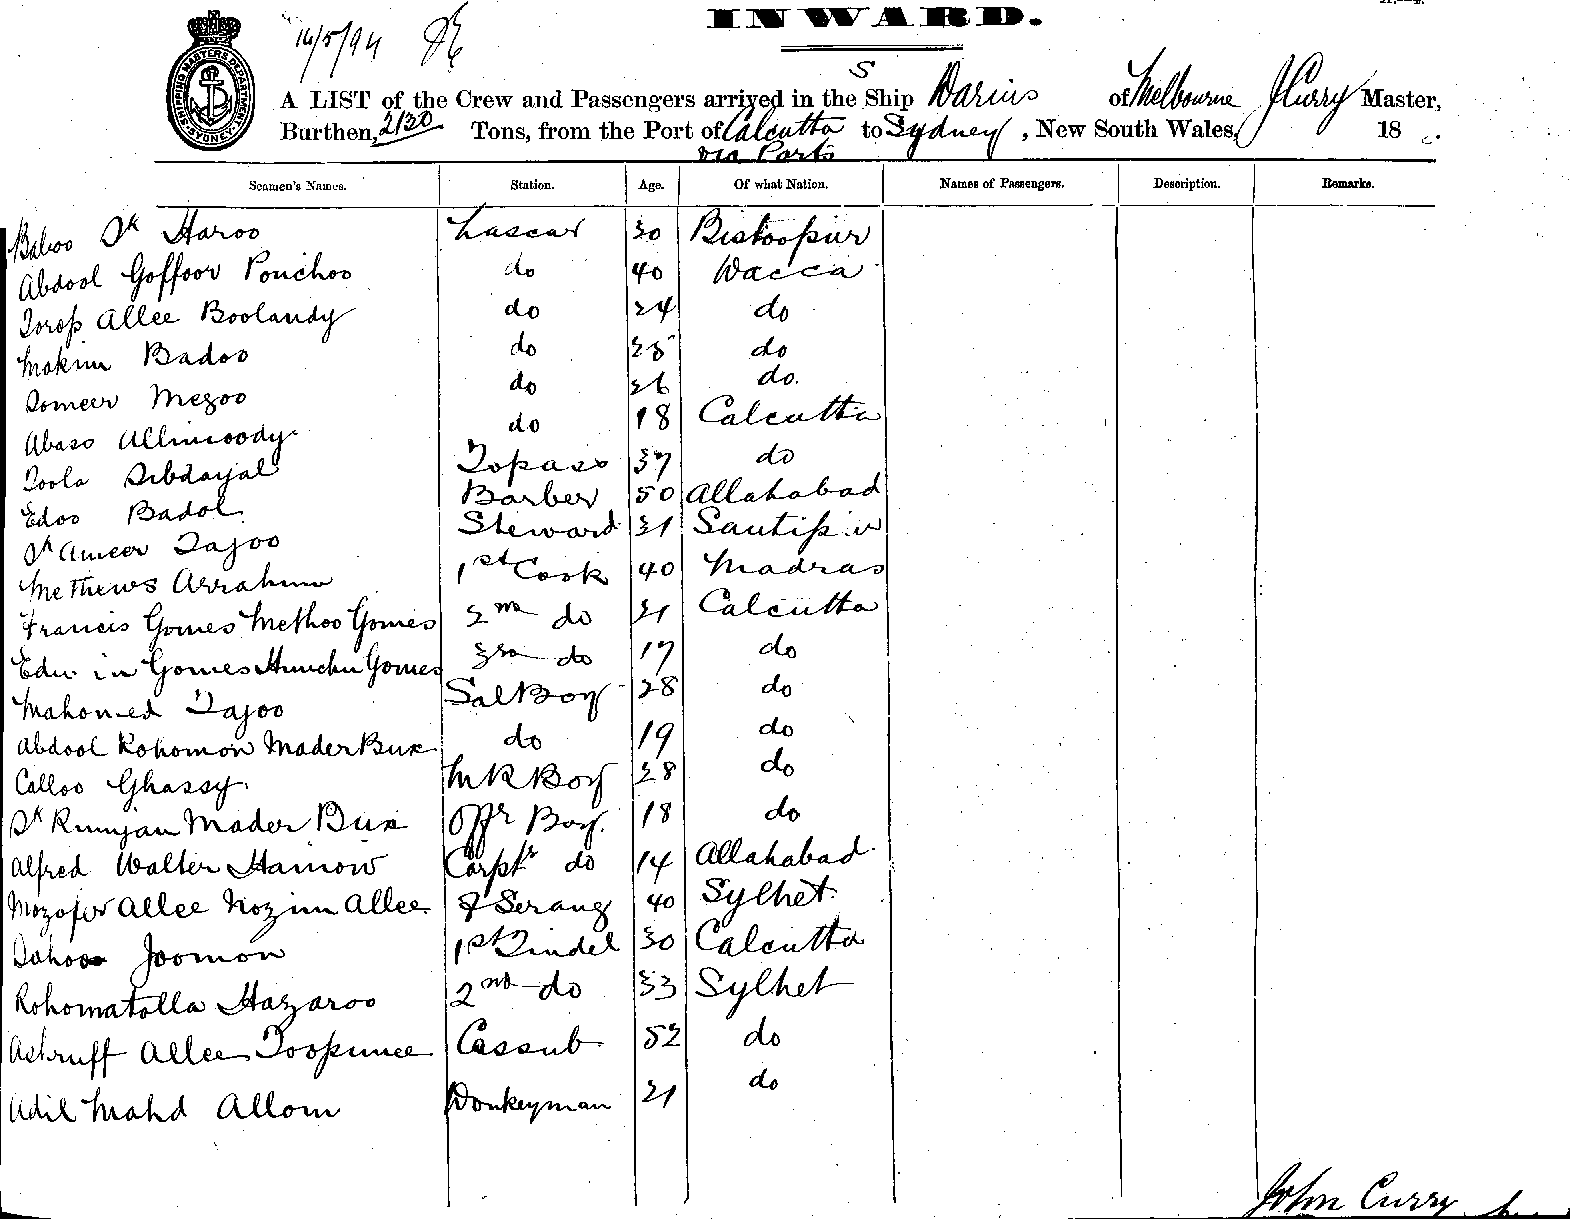 INWARD.
16/5/94
SHIPPING MASTERS DEPARTMENT SYDNEY
S
A LIST of the Crew and Passengers arrived in the Ship Darius of Melbourne J Curry Master,
Burthen, 2130 Tons, from the Port of Calcutta to Sydney, New South Wales, 18
via Ports
Seamen's Names. Station. Age. Of what Nation. Names of Passengers. Description. Remarks.
Baboo Sk Haroo Lascar 30 Bistoopur
Abdool Goffoor Ponchoo do 40 Dacca
Torop Allee Boolandy do 24 do
Mokim Badoo do 25 do
Domeer Megoo do 26 do.
Abaso Allimoody do 18 Calcutta
Toola Sibdayal Topaso 37 do
Edoo Badol Barber 50 Allahabad
Sk Ameer Tajoo Steward 31
Methews 1st Cook 40 Madras
Francis Gomes Methoo Gomes 2nd do 21 Calcutta
Edwin Gomes Gomes 3rd do 17 do
Mahomed Tajoo Sal Boy 28 do
Abdool Rohomon Mader Bux do 19 do
Calloo Ghassy M R Boy 28 do
Sk Rumjan Mader Bux Offr Boy. 18 do
Alfred Walter Carptr do 14 Allahabad
Mozofer Allee Nozim Allee Serang 40 Sylhet
Joomon 1st Tindel 30 Calcutta
Rohomatolla Hazaroo 2nd do 33 Sylhet
Ashruff Allee Toopunee Cassub 52 do
Adil Mahd Allom Donkeyman 31 do
John Curry